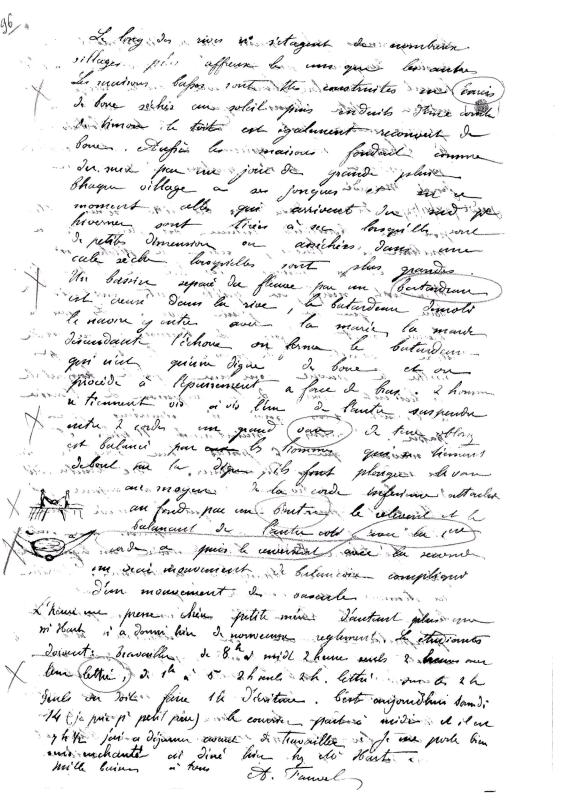 96
Le long des rives s'étagent de nombreux
villages plus affreux les uns que les autre
Les maisons basses sont construites en
de boue séchés au soleil puis enduits d'une
de limon le toit est également recouvert de
boue. Aussi les maisons fondent comme
du par un jour de grande pluie
Chaque village a ses jonques et en ce
moment celles qui arrivent du sud pr
hiverner sont tirées à sec lorsqu'elles sont
de petite dimension ou asséchées dans une
cale sèche lorsqu'elles sont plus grandes.
Un bassin séparé du fleuve par un batardeau
est creusé dans la rive, le batardeau démoli
le navire y entre avec la marée la marée
descendante l'échoue on ferme le batardeau
qui n'est qu'une digue de boue et on
procède à l'épuisement a force de bras. 2 hommes
se tiennent vis à vis l'un de l'autre
entre 2 cordes un grand vase de
est balancé par les hommes qui se tiennent
debout sur la digue ils font plonger le vase
au moyen de la corde inférieure attachée
au fond par un le relèvent et le
balancant de l'autre coté avec la
corde puis le renversent avec la seconde
un vrai mouvement de balancoire compliqué
d'un mouvement de bascule
L'heure me presse chère petite mère d'autant plus que
Mr Hart a donné de nouveaux reglement. Les étudiants
doivent travailler de 8h à midi 2 heure seuls 2 heures avec
leur lettré, de 1h à 5 2h seuls 2h lettré
seuls on doit faire 1h d'écriture. C'est aujourdhui samedi
14 (je petit père) le courrier part à midi et il est
7h ½ j'ai a déjeuner avant de travailler. Je me porte bien
suis enchanté ai diné hier by Mr Hart.
Mille baisers à tous
A. Fauvel